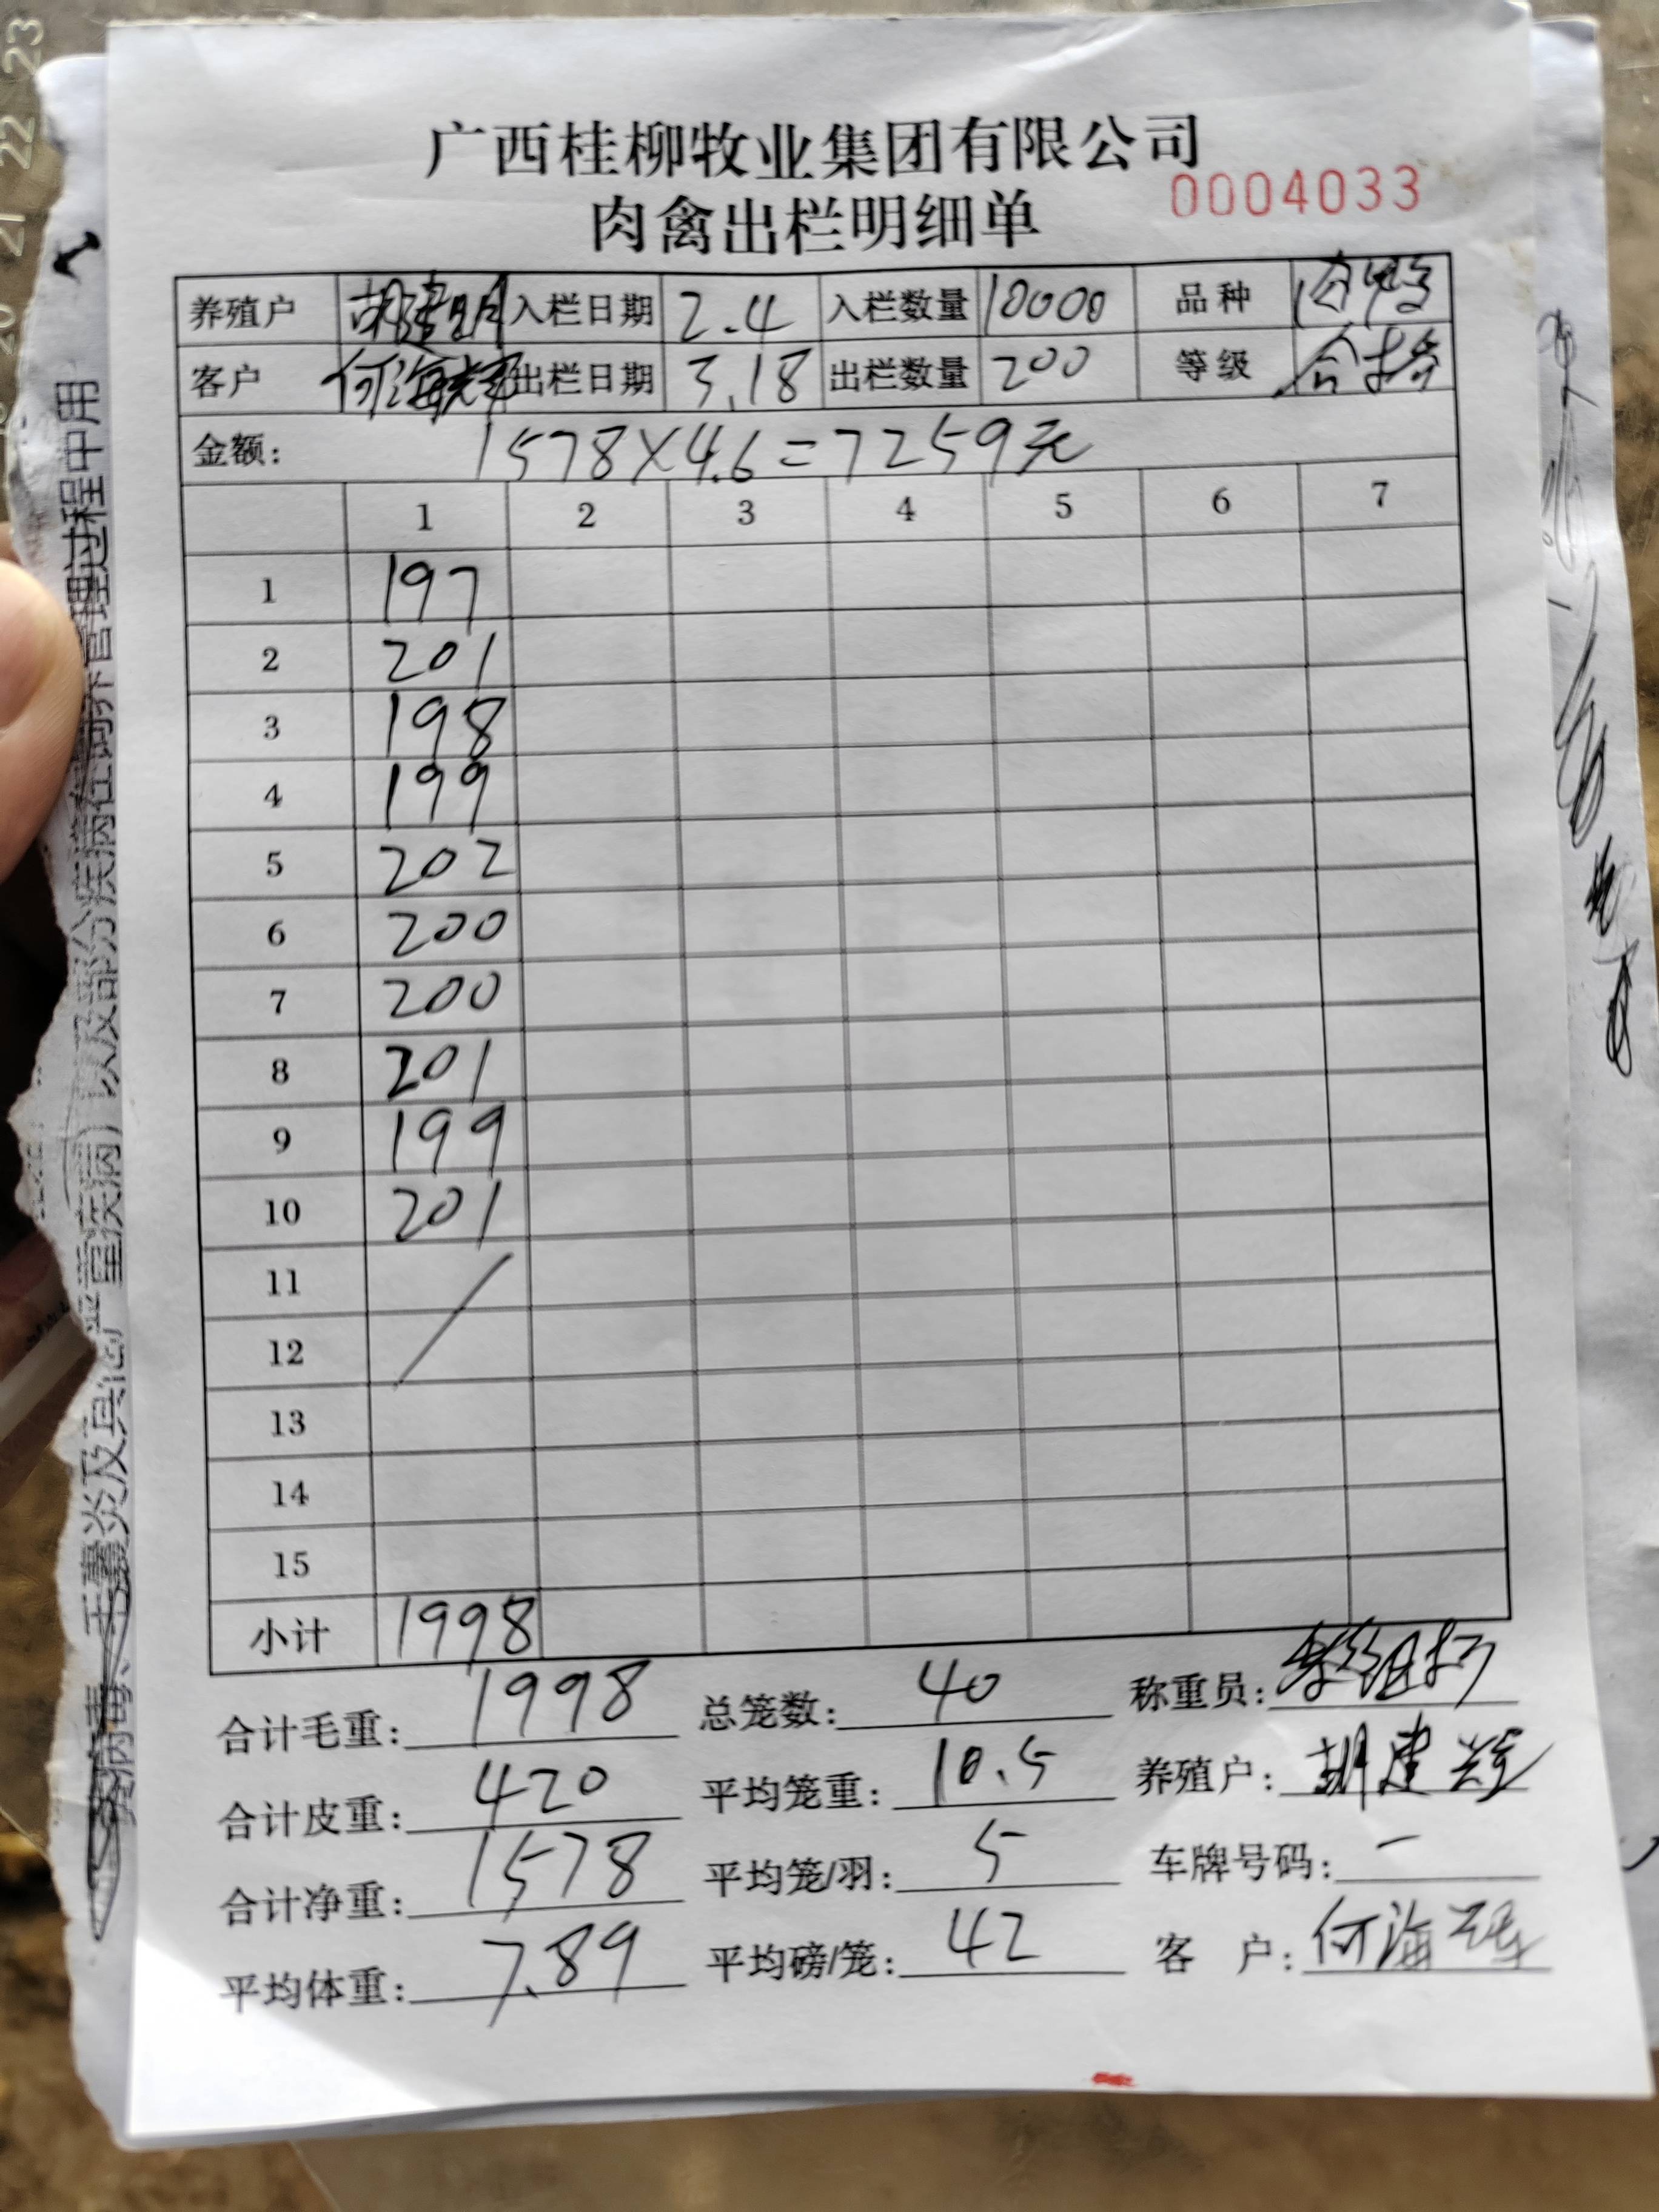 广西桂柳牧业集团有限公司
肉禽出栏明细单 0004033
养殖户 胡建明 入栏日期 2.4 入栏数量 10000 品种
客户 何海 出栏日期 3.18 出栏数量 200 等级 合格
金额: 1578×4.6=7259元
1 2 3 4 5 6 7
1 197
2 201
3 198
4 199
5 202
6 200
7 200
8 201
9 199
10 201
11
12
13
14
15
小计 1998
合计毛重: 1998 总笼数: 40 称重员:
合计皮重: 420 平均笼重: 10.5 养殖户: 胡建
合计净重: 1578 平均笼/羽: 5 车牌号码: —
平均体重: 7.89 平均磅/笼: 42 客 户: 何海
以及部分疾病在饲养管理过程中用
23
22
21
20